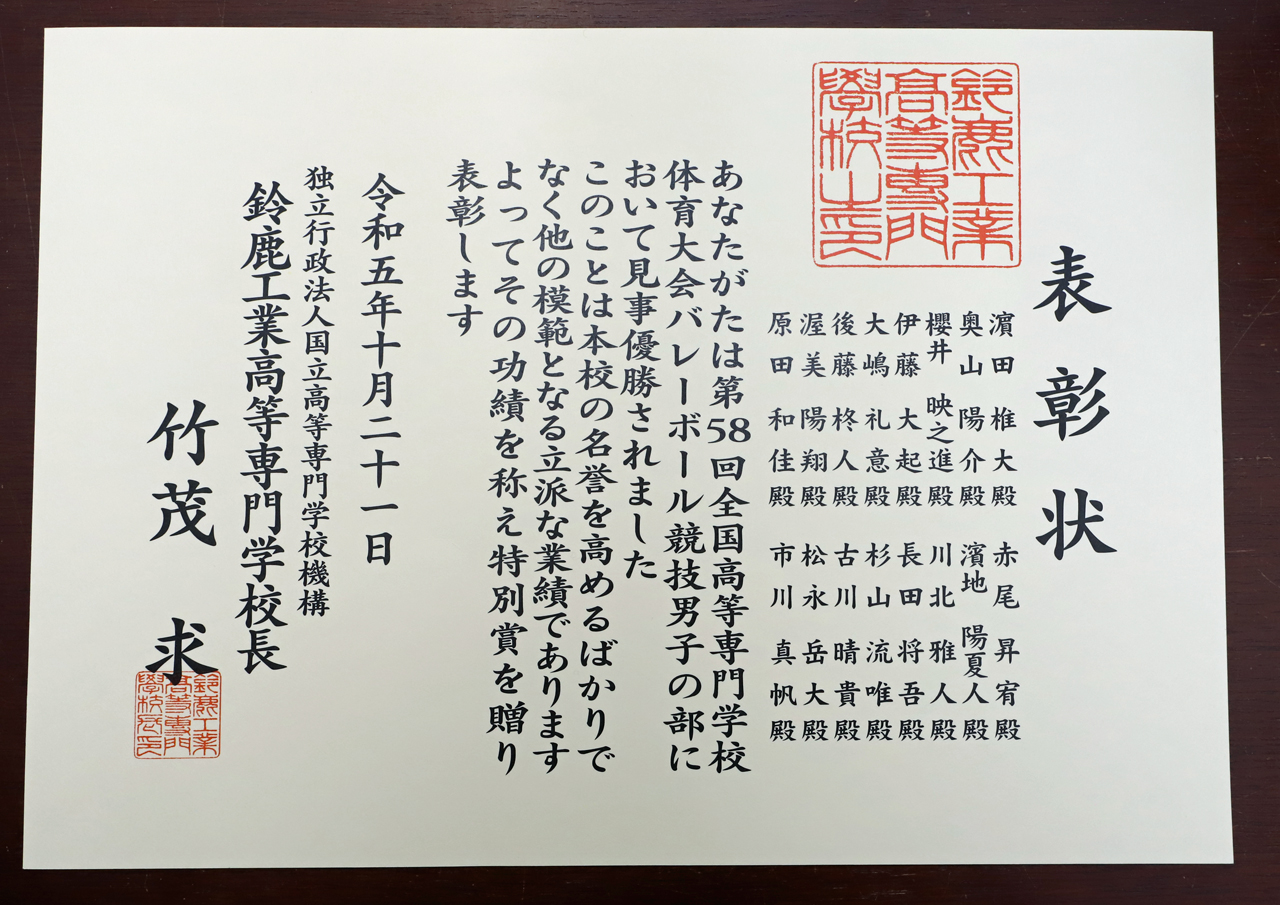 表彰状
濵田 椎大殿
奥山 陽介殿
櫻井 映之進殿
伊藤 大起殿
大嶋 礼意殿
後藤 柊人殿
渥美 陽翔殿
原田 和佳殿
赤尾 昇宥殿
濵地 陽夏人殿
川北 雅人殿
長田 将吾殿
杉山 流唯殿
古川 晴貴殿
松永 岳大殿
市川 真帆殿
鈴鹿工業
高等専門
學校之印
あなたがたは第58回全国高等専門学校
体育大会バレーボール競技男子の部に
おいて見事優勝されました
このことは本校の名誉を高めるばかりで
なく他の模範となる立派な業績であります
よってその功績を称え特別賞を贈り
表彰します
令和五年十月二十一日
独立行政法人国立高等専門学校機構
鈴鹿工業高等専門学校長
竹茂 求
鈴鹿工業
高等専門
學校長印